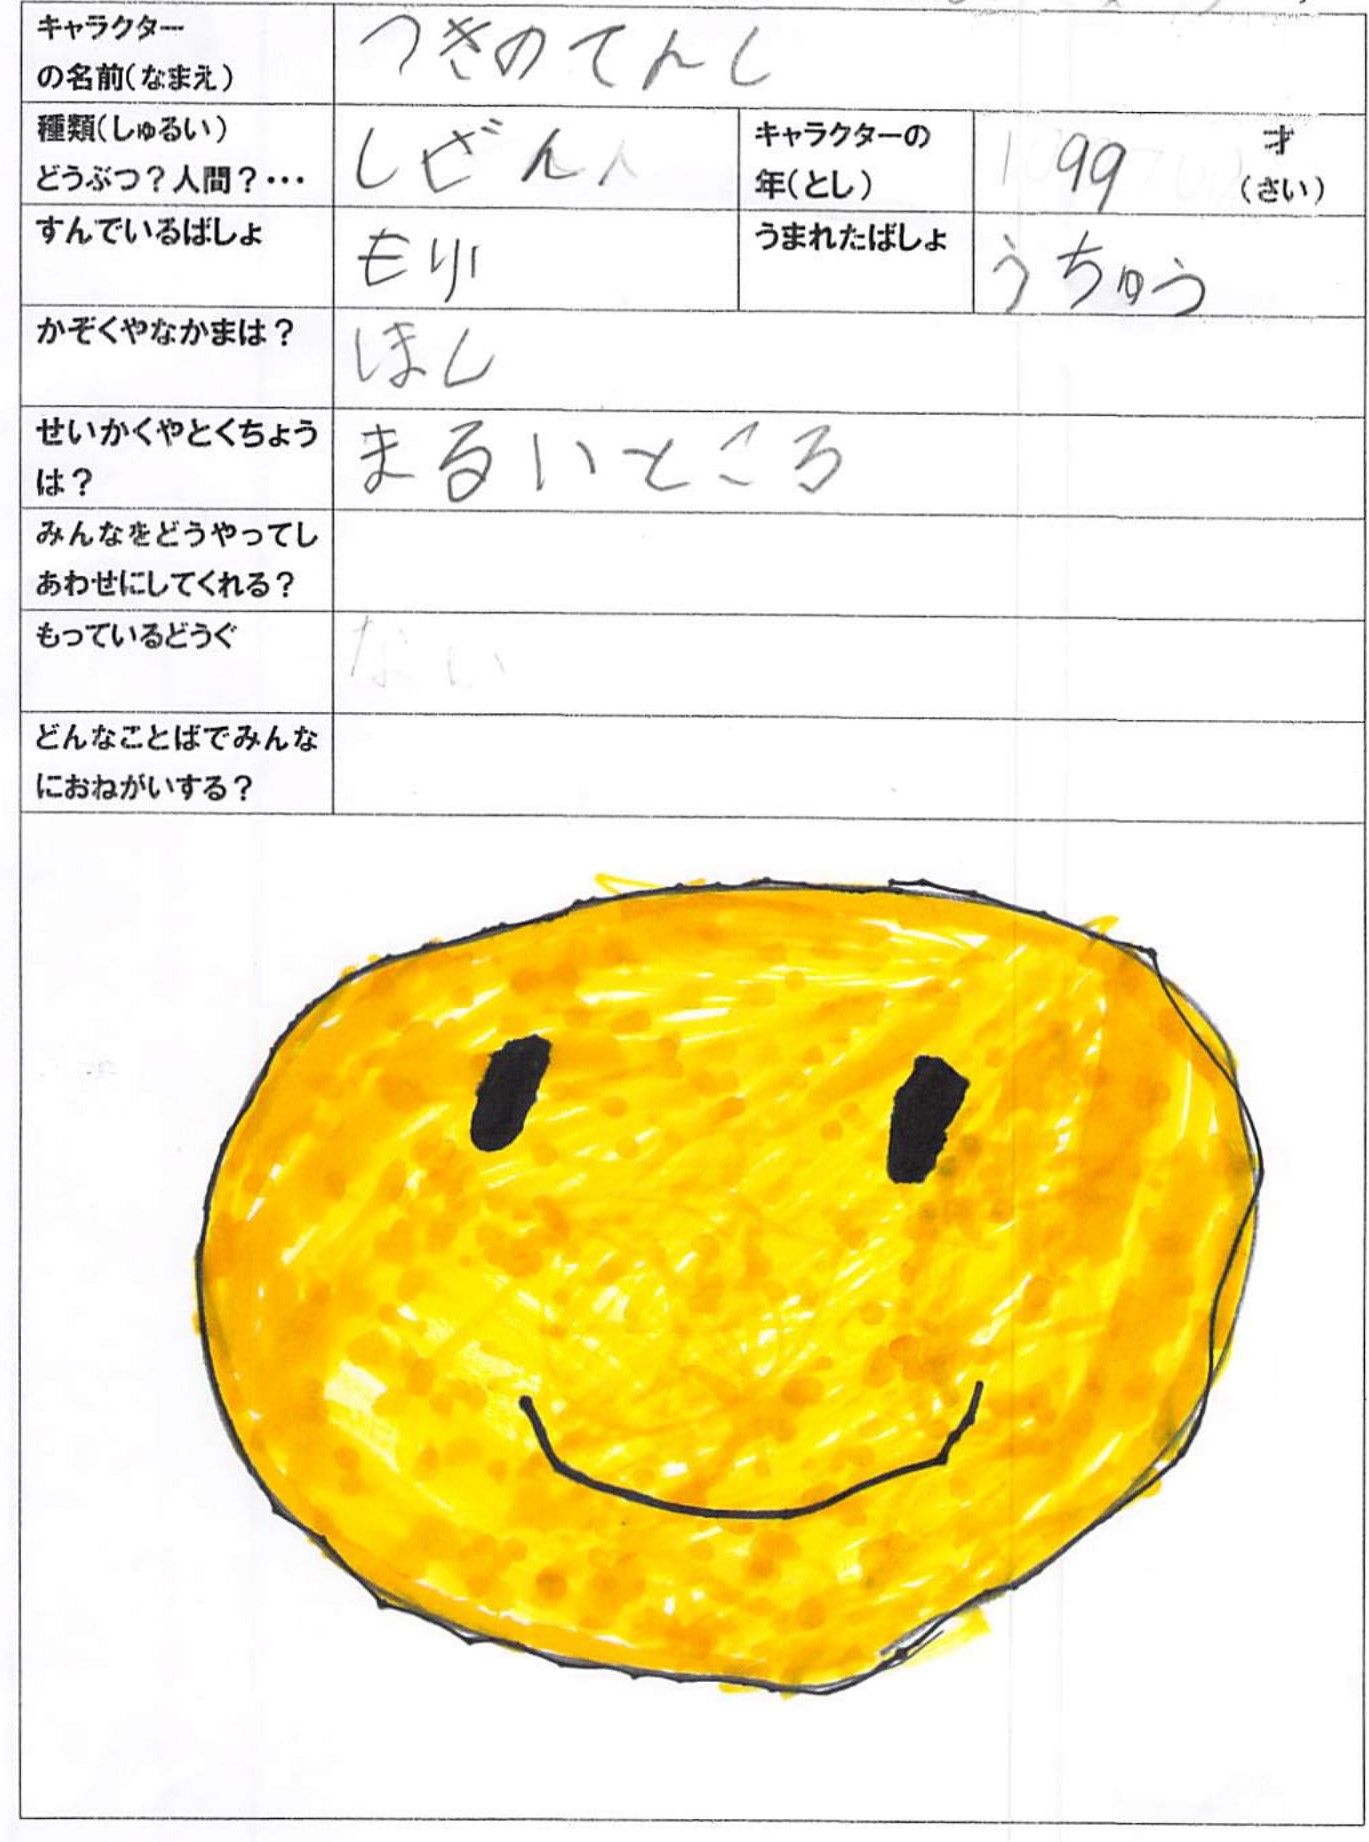 キャラクター
の名前(なまえ)
つきのてんし
種類(しゅるい)
どうぶつ?人間?・・・
しぜん
キャラクターの
年(とし)
99
才
(さい)
すんでいるばしょ
もり
うまれたばしょ
うちゅう
かぞくやなかまは?
ほし
せいかくやとくちょう
は?
まるいところ
みんなをどうやってし
あわせにしてくれる?
もっているどうぐ
ない
どんなことばでみんな
におねがいする?